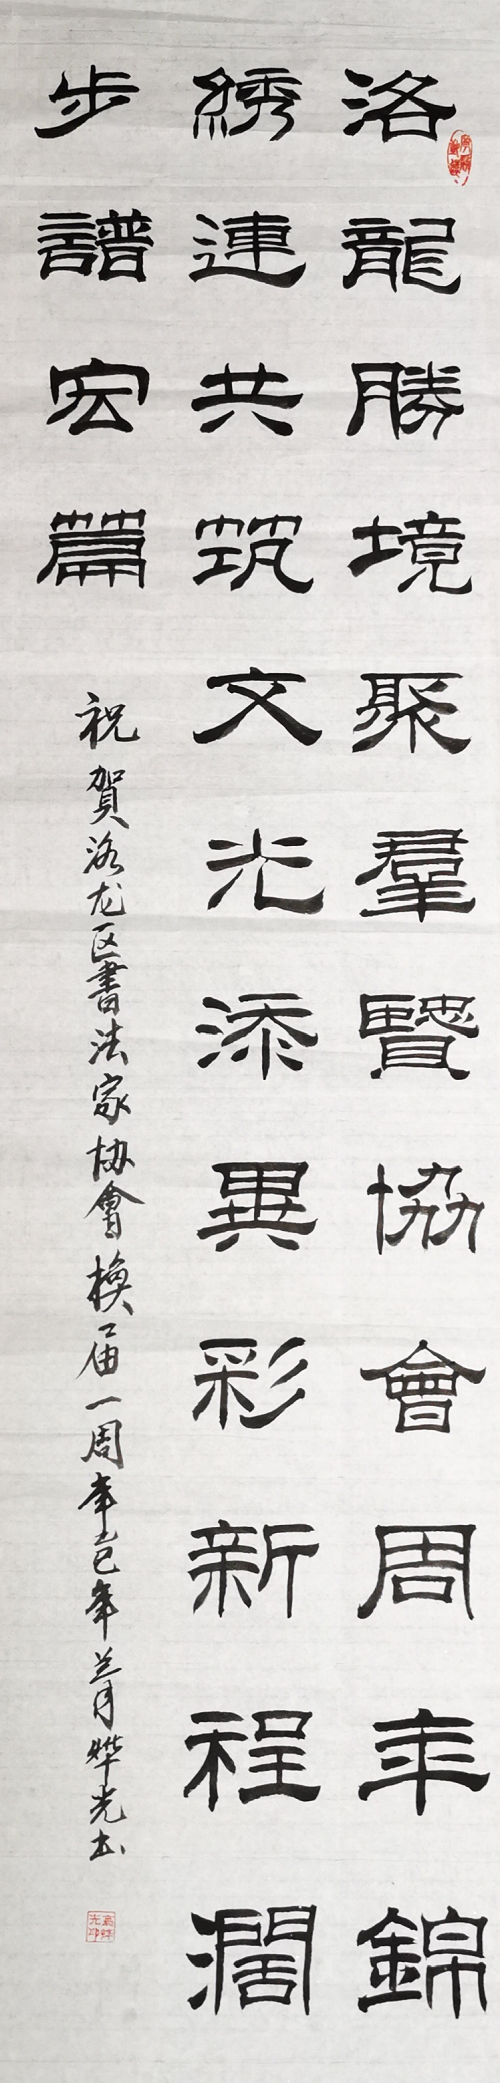 洛龍勝境聚羣賢協會周年錦
綉連共筑文光添異彩新程濶
步譜宏篇
祝賀洛龙区書法家协會换届一周年乙巳年兰月烨光书